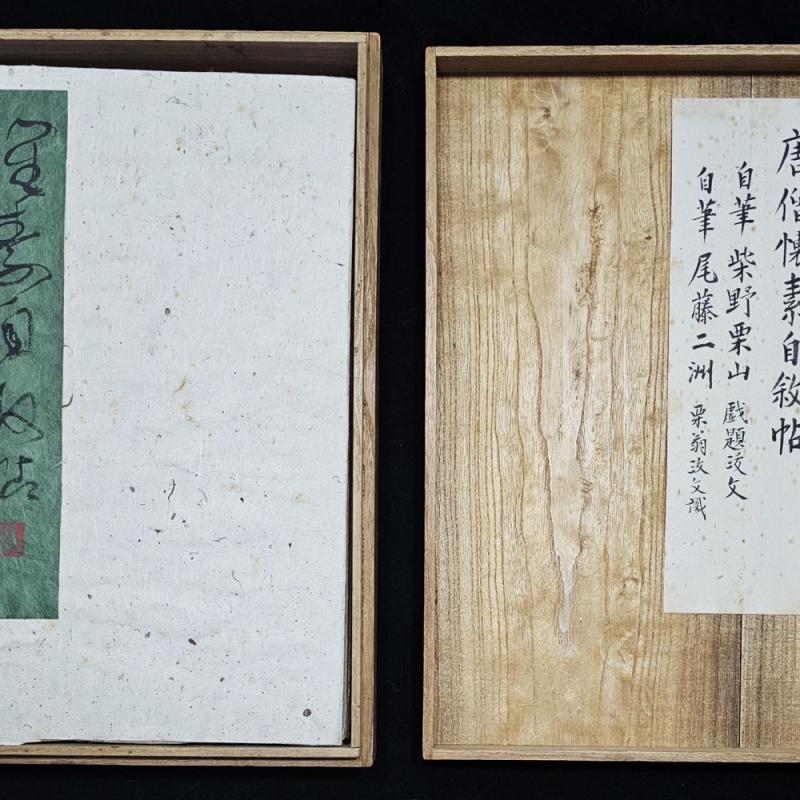 唐僧懐素自敘帖
自筆 柴野栗山 戯題跋文
自筆 尾藤二洲 栗翁跋文識
懐素自敘帖